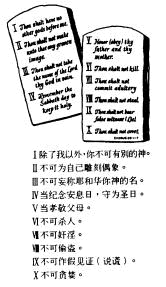 I Thou shalt have no
other gods before me.
II Thou shalt not make
unto thee any graven
image.
III Thou shalt not take
the name of the Lord
thy God in vain.
IV Remember the
Sabbath day to
keep it holy.
V Honor (obey) thy
father and thy
mother.
VI Thou shalt not kill.
VII Thou shalt not
commit adultery
VIII Thou shalt not steal.
IX Thou shalt not bear
false witness (Lie)
X Thou shalt not covet.
I 除了我以外,你不可有別的神。
II 不可为自己雕刻偶像。
III 不可妄称耶和华你神的名。
IV 当纪念安息日,守为圣日。
V 当孝敬父母。
VI 不可杀人。
VII 不可奸淫。
VIII 不可偷盗。
IX 不可作假见证(说谎)。
X 不可贪婪。